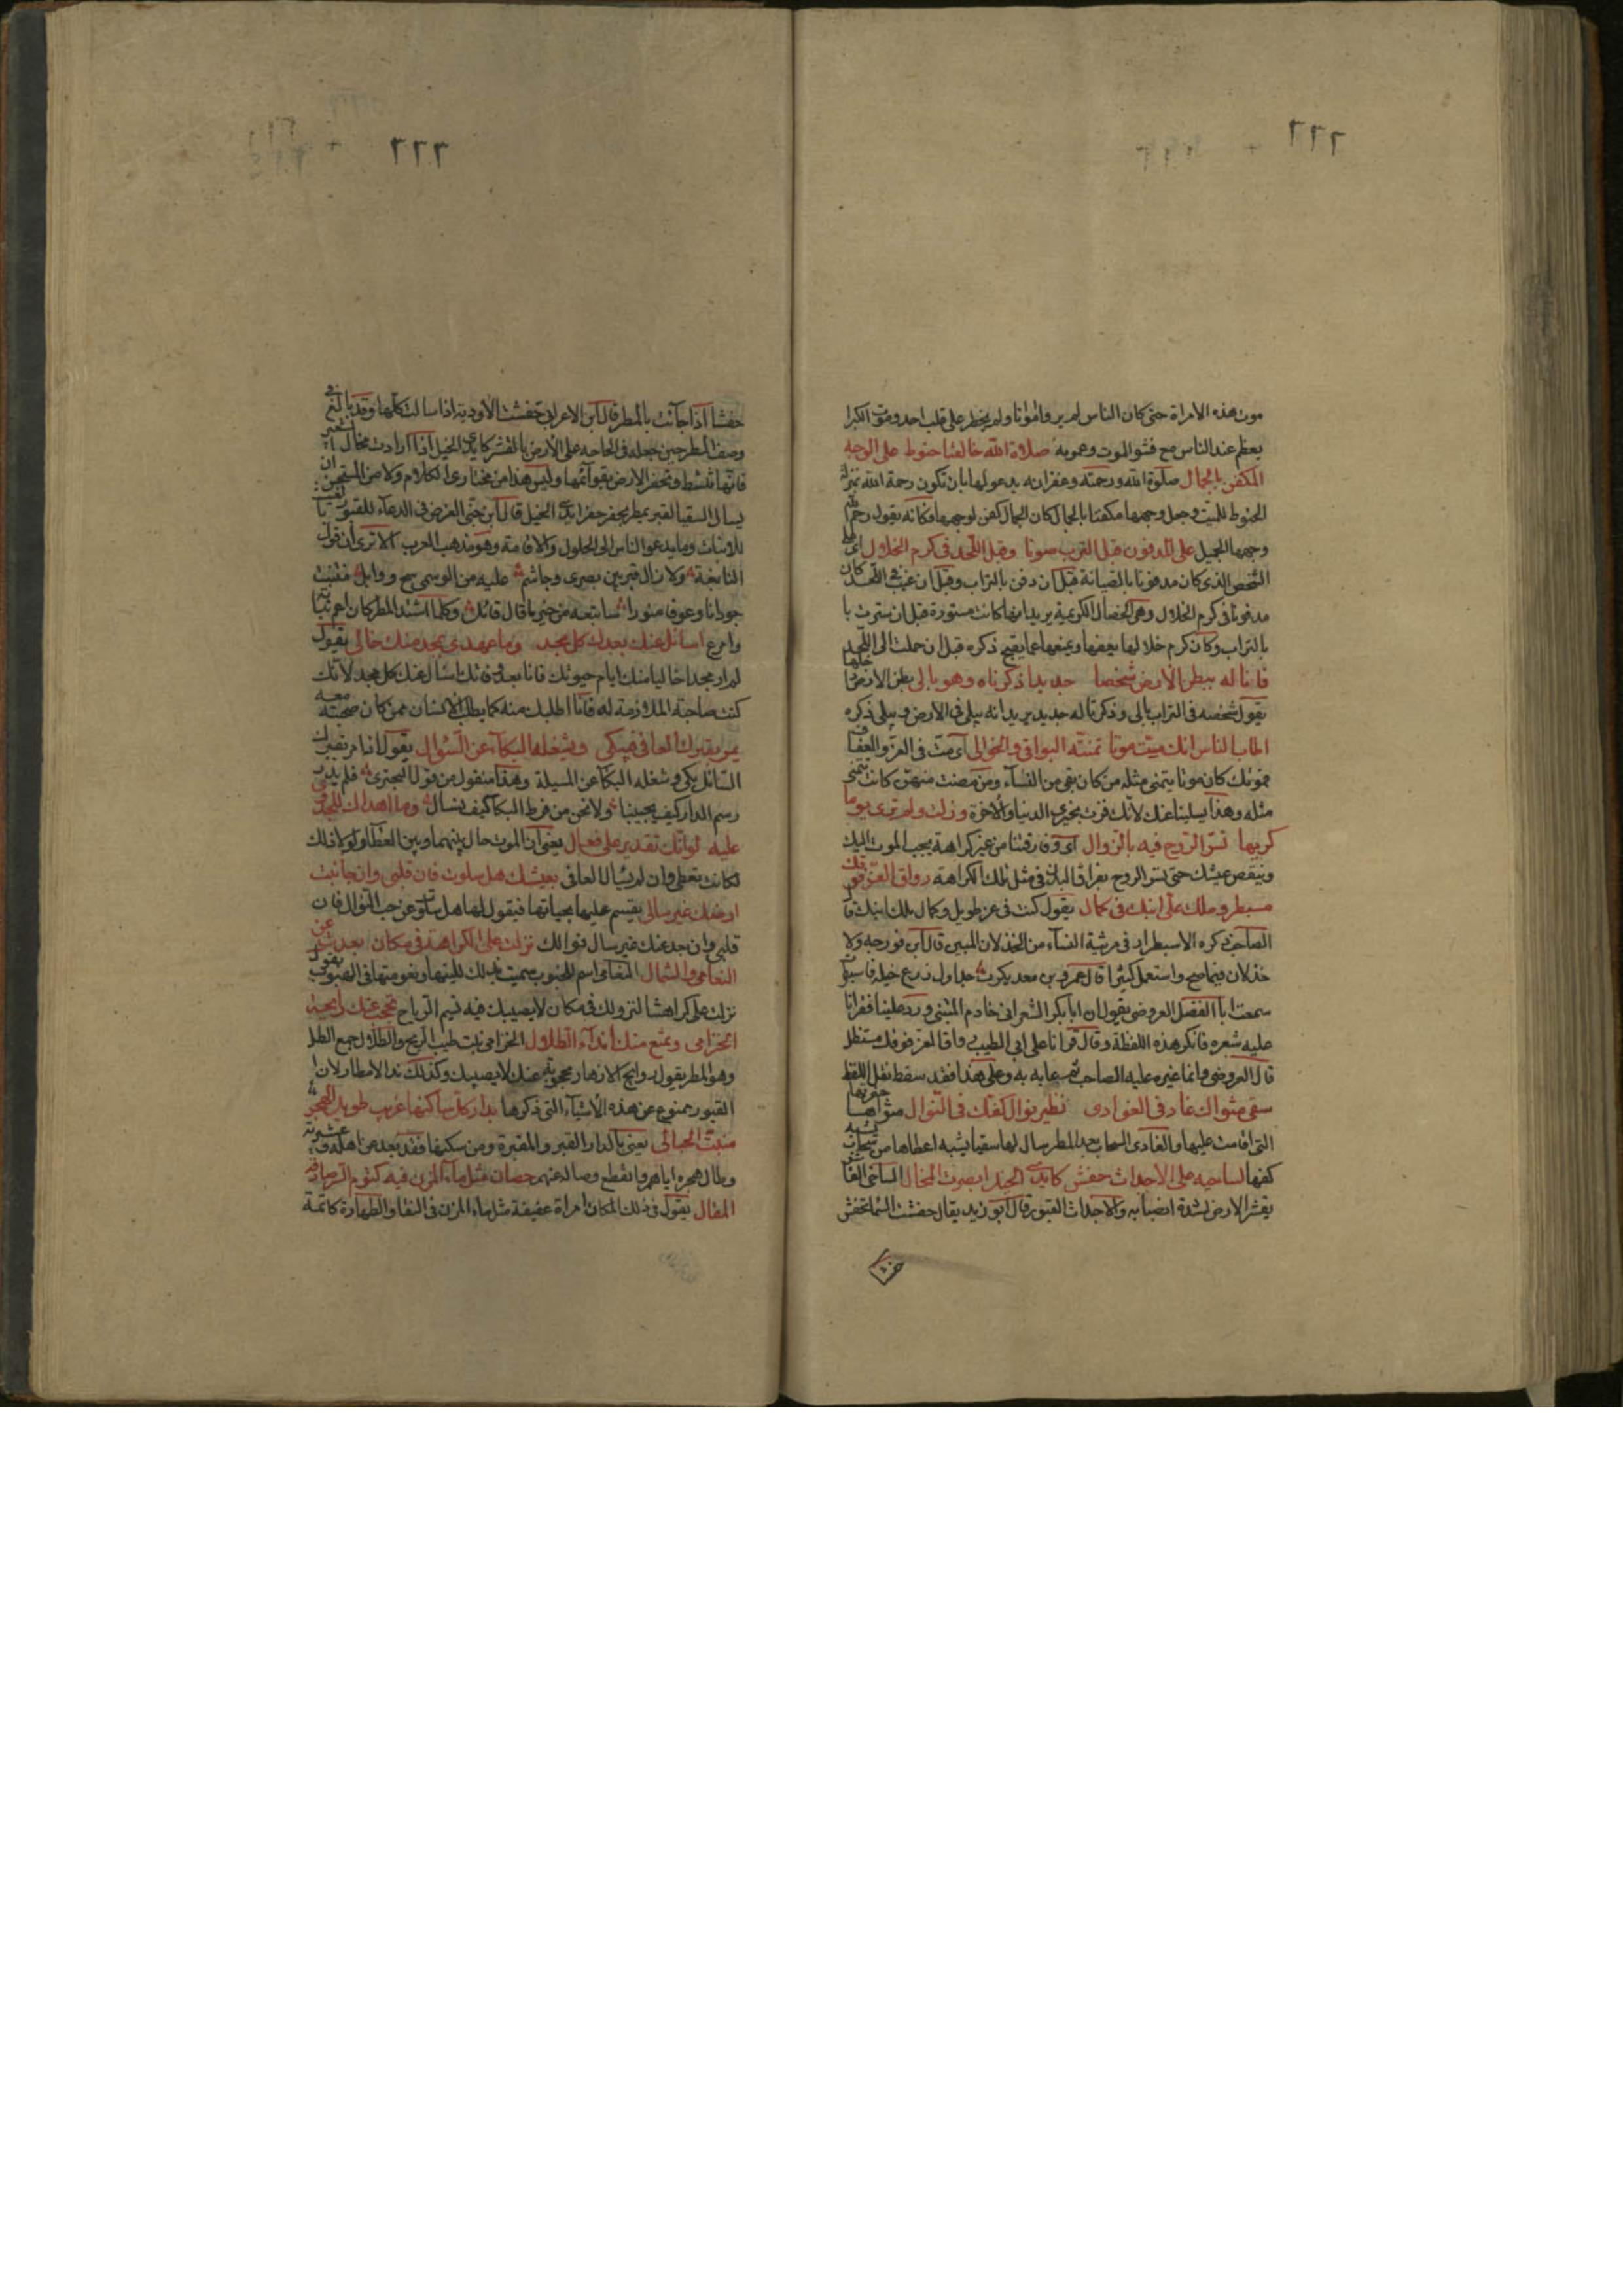 ٦٦٦
موت هذه الامراة حتى كان الناس لم يروا موتا ولم يخطر على قلب احد وموت الكبرا
يعظم عند الناس مع فشو الموت وعمومه صلاة الله خالقنا حنوط على الوجه
المكفن بالجمال صلوة الله ورحمته وغفرانه يدعو لها بان تكون رحمة الله بمنزلة
الحنوط للميت وجعل وجهها مكفنا بالجمال كان الجمال كفن لوجهها وكانه يقول رحم الله
وجهها الجميل على المدفون قبل الترب صونا وقبل اللحد فى كرم الخلال اى على
الشخص الذى كان مدفونا بالصيانة قبل ان دفن بالتراب وقبل ان غيب فى اللحد كان
مدفونا فى كرم الخلال وهى الخصال الكريمة يريد انها كانت مستورة قبل ان سترت با
بالتراب وكان كرم خلالها يعفها ويمنعها عما يقبح ذكره قبل ان حملت الى اللحد
فان له ببطن الارض شخصا جديدا ذكرناه وهو بالى بطن الارض
يقول شخصه فى التراب بالى وذكرنا له جديد يريد انه يبلى فى الارض ولا يبلى ذكره
اطاب الناس انك ميت موتا تمنته البواقى والخوالى اى مت فى العز والعفاف
فموتك كان موتا يتمنى مثله من كان بقى من النساء ومن مضت منهن كانت تتمنى
مثله وهذا يسلينا عنك لانك فزت بخيرى الدنيا والاخرة وزلت ولم ترى يوما
كريها تسر الروح فيه بالزوال اى وفارقتنا من غير كراهة يحبب الموت اليك
وينقص عيشك حتى يسر الروح بفراق البدن فى مثل تلك الكراهة رواق العز فوقك
مسبطر وملك على ابنك فى كمال يقول كنت فى عز طويل وكمال ملك ابنك قال
الصاحب ذكره الاسبطرار فى مرثية النساء من الخذلان المبين قال ابن فورجه ولا
خذلان فيما صح واستعمل كثيرا قال عمرو بن معديكرب جداول زرع خيله فاسبطرت
سمعت ابا الفضل العروضى يقول ان ابا بكر الشعرانى خادم المتنبى ورد علينا فقرانا
عليه شعره فانكر هذه اللفظة وقال قرانا على ابى الطيب رواق العز فوقك مستظل
قال العروضى وانما غيره عليه الصاحب ثم عابه به وعلى هذا فقد سقط نقل اللفظ
سقى مثواك غاد فى الغوادى نظير نوال كفك فى النوال مثواها
التى اقامت عليها والغادى السحاب يغدو بالمطر سال لها سقيا يشبه اعطاها من سحاب
كفها لساحيه على الاجداث حفش كايدى الخيل ابصرت المخالى الساحى الذى
يقشر الارض لشدة انصبابه والاجداث القبور قال ابو زيد يقال حفشت السماء تحفش
٦٦٦
حفشا اذا جآئت بالمطر قال ابن الاعرابى حفشت الاودية اذا سالت كلها وقد بالغ فى
وصف المطر حين جعله فى الحاحه على الارض بالقشر كايدى الخيل اذا رات مخالى الشعير
فانها تنشط وتحفر الارض بقوائمها وليس هذا من مختار الكلام ولا من المستحسن ان
يسال السقيا لقبر بمطر يحفر حفر ايدى الخيل قال ابن جنى الغرض فى الدعآء للقبور
للانبات وما يدعو الناس الى الحلول والاقامة وهو مذهب العرب الا ترى ان قول
النابغة ولا زال قبر بين بصرى وجاسم عليه من الوسمى سح ووابل فينبت
حوذانا وعوفا منورا ساتبعه من خير ما قال قائل وكلما اشتد المطر كان اعم لنباته
وامرع اسائل عنك بعدك كل مجد وما عهدى بمجد منك خالى يقول
لم ار مجدا خاليا منك ايام حيوتك فانا بعد وفاتك اسأل عنك كل مجد لانك
كنت صاحبة الملازمة له فانا اطلبك منه كما يطلب الانسان ممن كان صحبته معه
يمر بقبرك العافى فيبكى ويشغله البكآء عن السؤال يقول اذا مر بقبرك
السائل بكى وشغله البكآ عن المسيلة وهذا منقول من قول البحترى فلم يدر
رسم الدار كيف يجيبنا ولا نحن من فرط البكا كيف نسال وما اهداك للجدوى
عليه لو انك تقدرين على فعال يعنى ان الموت حال بينهما وبين العطآ ولولا ذلك
لكانت تعطى وان لم يسال العافى بعيشك هل سلوت فان قلبى وان جانبت
ارضك غير سالى يقسم عليها بحياتها فيقول لها هل سلوت عن حب النوال فان
قلبى وان بعد عنك غير سال نوالك نزلت على الكراهة فى مكان بعدت عن
النعامى والشمال النعامى اسم الجنوب سميت بذلك للينها ونعومتها فى الهبوب يقول
نزلت على كراهتنا لنزولك فى مكان لا يصيبك فيه نسيم الرياح تحجب عنك رايحة
الخزامى وتمنع منك انداء الطلال الخزامى نبت طيب الريح والطلال جمع الطل
وهو المطر يقول روايح الازهار محجوبة عنك لا يصيبك وكذلك ندا الامطار لان
القبور ممنوع عن هذه الاشيآء التى ذكرها بدار كل ساكنها غريب طويل الهجر
منبت الحبال يعنى بالدار القبر والمقبرة ومن سكنها فقد بعد عن اهله وعشيرته
وطال هجره اياهم وانقطع وصاله عنهم حصان مثل ماء المزن فيه كتوم السر صادقة
المقال يقول فى ذلك المكان امراة عفيفة مثل ماء المزن فى النقا والطهارة كاتمة